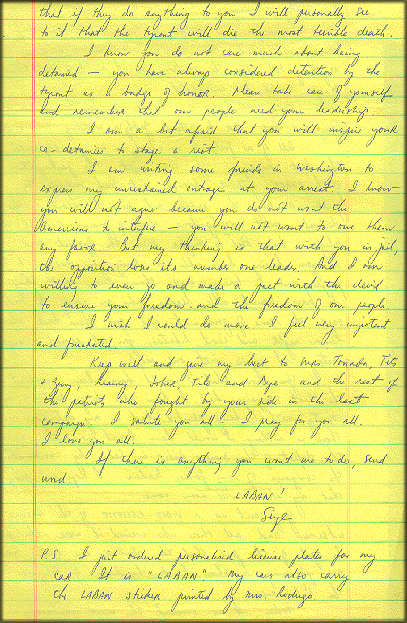 that if they do anything to you I will personally see
to it that the tyrant will die the most terrible death.
I know you do not care much about being
detained — you have always considered detention by the
tyrant as a badge of honor. Please take care of yourself
and remember that our people need your leadership.
I am a bit afraid that you will inspire your
co-detainees to stage a riot.
I am writing some friends in Washington to
express my unrestrained outrage at your arrest. I know
you will not agree because you do not want the
Americans to interfere — you will not want to owe them
any favor. But my thinking is that with you in jail,
the opposition loses its number one leader. And I am
willing to even go and make a pact with the devil
to ensure your freedom and the freedom of our people.
I wish I could do more. I feel very impotent
and frustrated.
Keep well and give my best to Mrs. Tañada, Tito
+ Jojo, Joker, Tito and Pepe and the rest of
the patriots who fought by your side in the last
campaign. I salute you all. I pray for you all.
I love you all.
If there is anything you want me to do, send
word.
LABAN!
P.S. I just ordered personalized license plates for my
car. It is "LABAN" My cars also carry
the LABAN sticker printed by Mrs. Rodrigo.